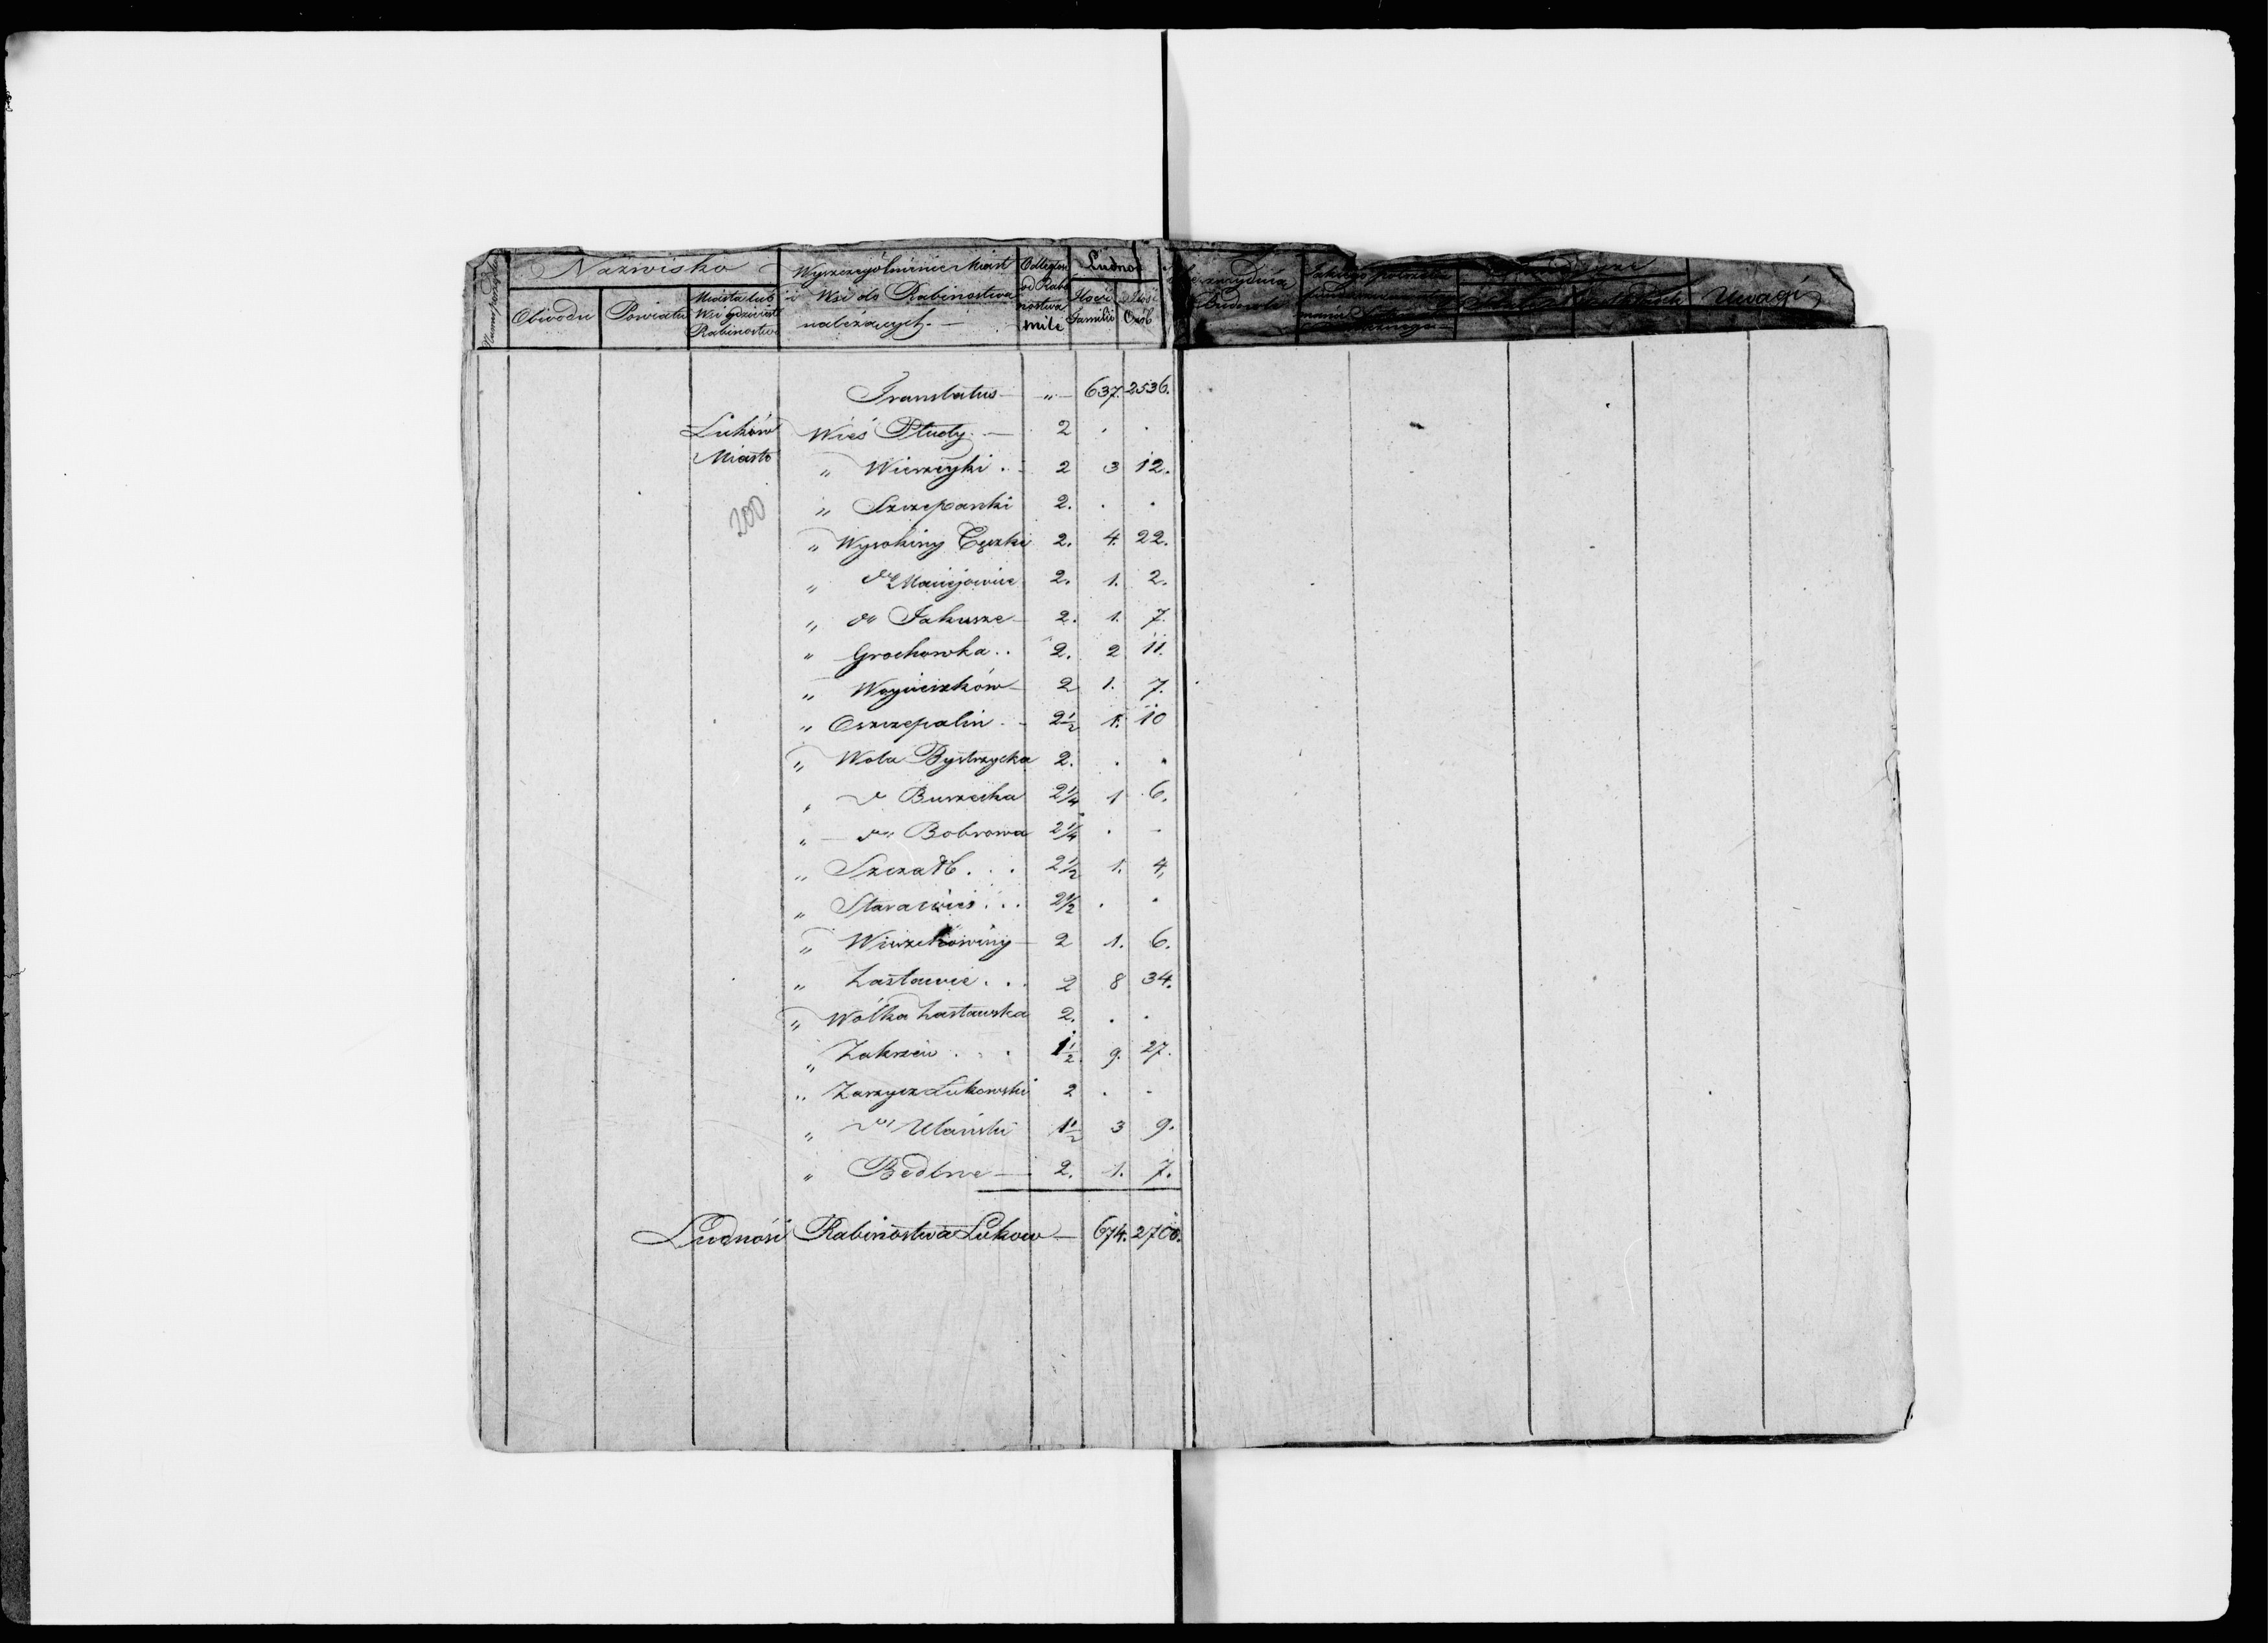 Nazwisko
Obwodu Powiatu Miasta lub Wsi gdzie jest Rabinostwo
Wyszczególnienie Miast i Wsi do Rabinostwa należących. —
Odległość od Rabinostwa mile
Ludność
Ilość Familii Ilość Osób
Uwagi
Translatus — „ — 637. 2536.
Łuków Wieś Płudy. — 2 . .
Miasto „ Wierzejki . - 2 3 12.
200 „ Szczepanki 2. . .
„ Wysokiny Tęczki 2. 4. 22.
„ do Maciejowice 2. 1. 2.
„ do Jakusze — 2. 1. 7.
„ Grochowka . . 2. 2 11.
„ Woycieszków — 2 1. 7.
„ Oszczepalin . - 2½ 1. 10
„ Wola Bystrzycka 2. . .
„ do Burzecka 2¼ 1 6.
„ — do Bobrowa 2¼ . -
„ Szczałb . . . 2½ 1. 4,
„ Starawieś . . . 2½ . .
„ Wierzchowiny — 2 1. 6.
„ Zastawie . . . 2 8 34.
„ Wólka Zastawska 2. . .
„ Zakrzew . . . 1½ 9. 27.
„ Zarzycz Łukowski 2 . .
„ do Ulański 1½ 3 9.
„ Bedlne — 2. 1. 7.
Ludność Rabinostwa Łukow — 674. 2700.